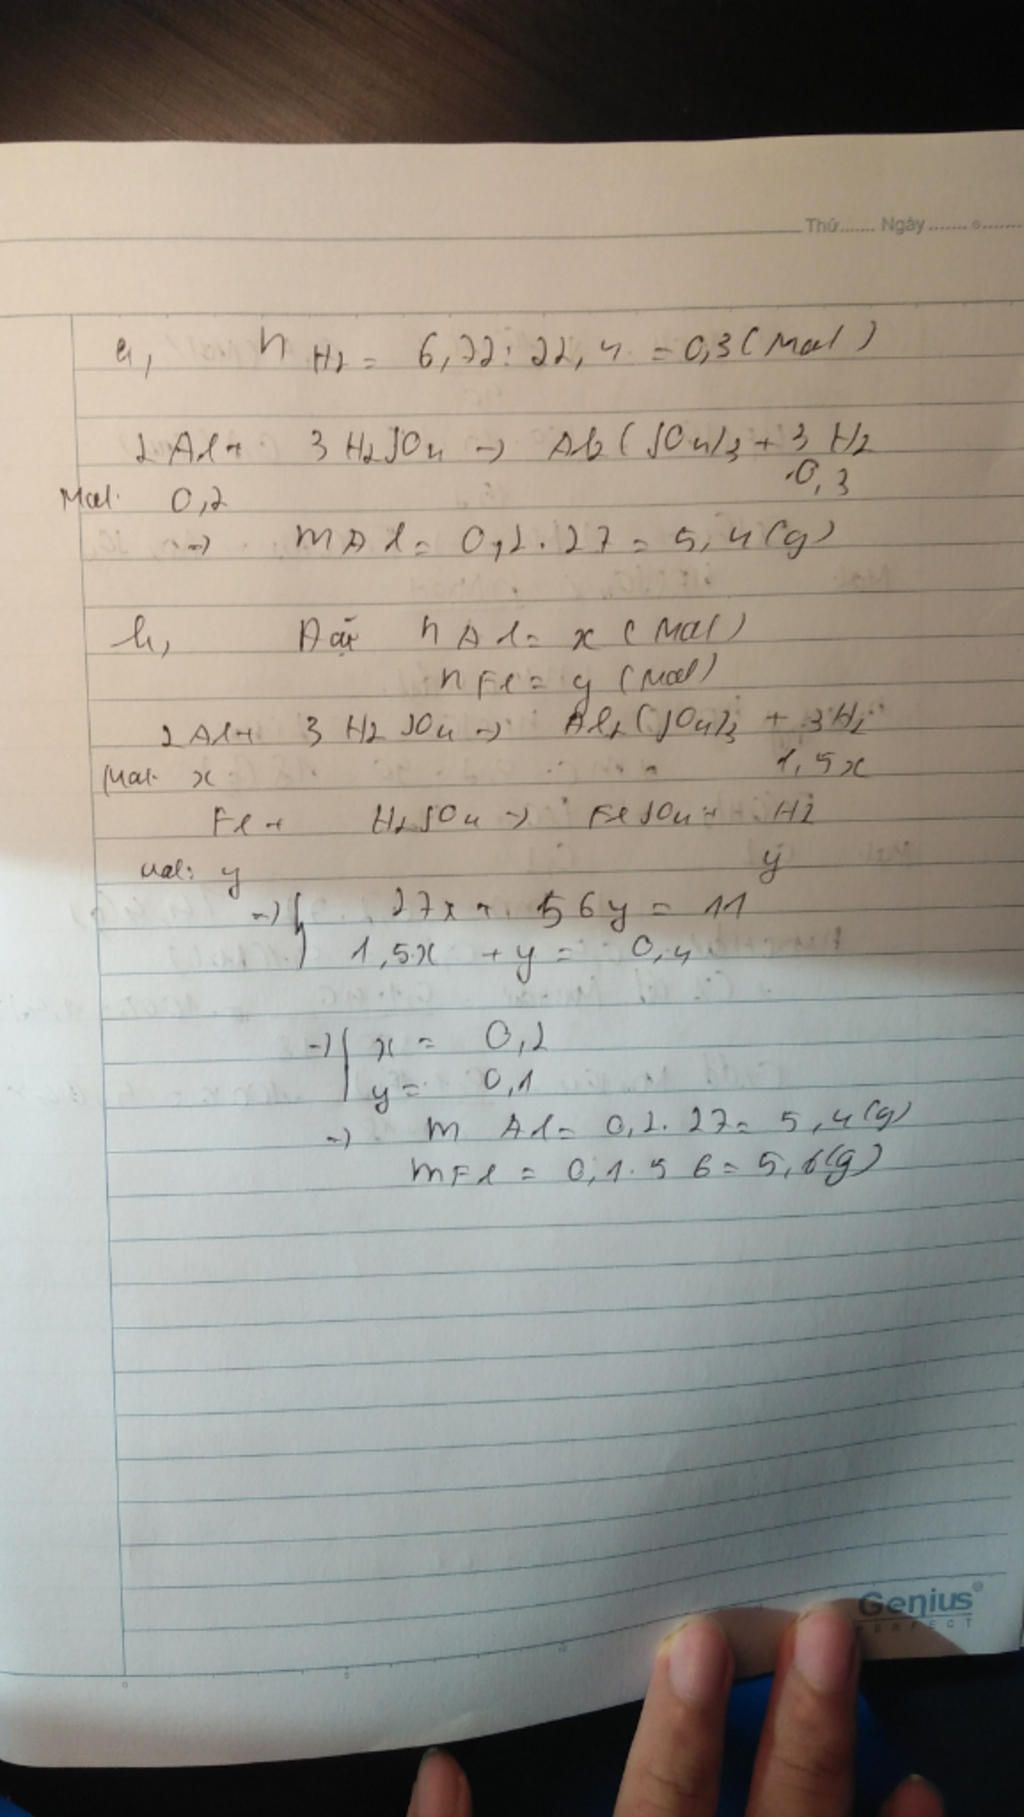 Thứ....... Ngày ....... º.......
a, n H2 = 6,72 : 22,4 = 0,3 (mol)
2Al + 3H2SO4 → Al2(SO4)3 + 3H2
Mol: 0,2 0,3
→ mAl = 0,2 . 27 = 5,4 (g)
b, Đặt nAl = x (mol)
nFe = y (mol)
2Al + 3H2SO4 → Al2(SO4)3 + 3H2
Mol: x 1,5x
Fe + H2SO4 → FeSO4 + H2
Mol: y y
→ { 27x + 56y = 11
1,5x + y = 0,4
→ { x = 0,2
y = 0,1
→ m Al = 0,2 . 27 = 5,4 (g)
mFe = 0,1 . 56 = 5,6 (g)
Genius®
PERFECT